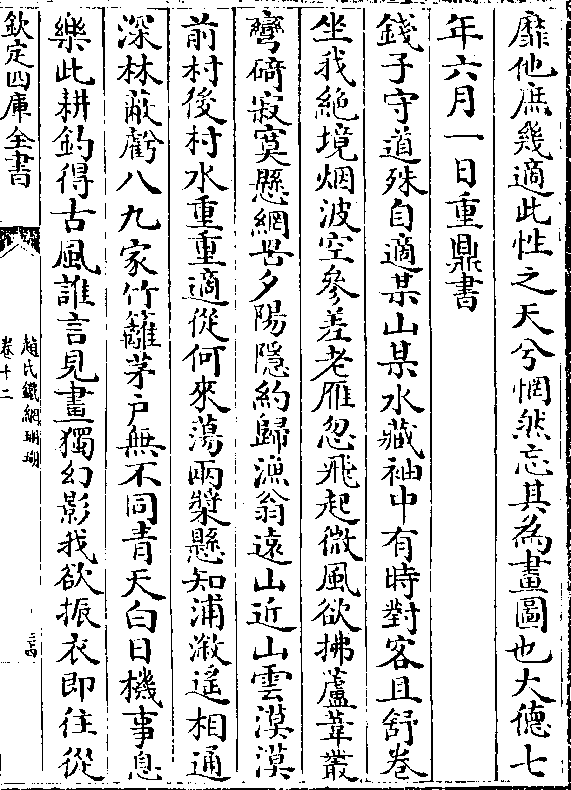 靡他庶幾適此性之天兮惘然忘其為畫圖也大德七
年六月一日重鼎書
錢子守道殊自適某山某水藏袖中有時對客且舒卷
坐我絕境烟波空參差老雁忽飛起微風欲拂蘆葦叢
彎碕寂寞懸網罟夕陽隱約歸漁翁遠山近山雲漠漠
前村後村水重重適從何來蕩兩槳懸知浦漵遙相通
深林蔽虧八九家竹籬茅戶無不同青天白日機事息
樂此耕釣得古風誰言見畫獨幻影我欲振衣即往從
欽定四庫全書
趙氏鐵網珊瑚
卷十二
三四